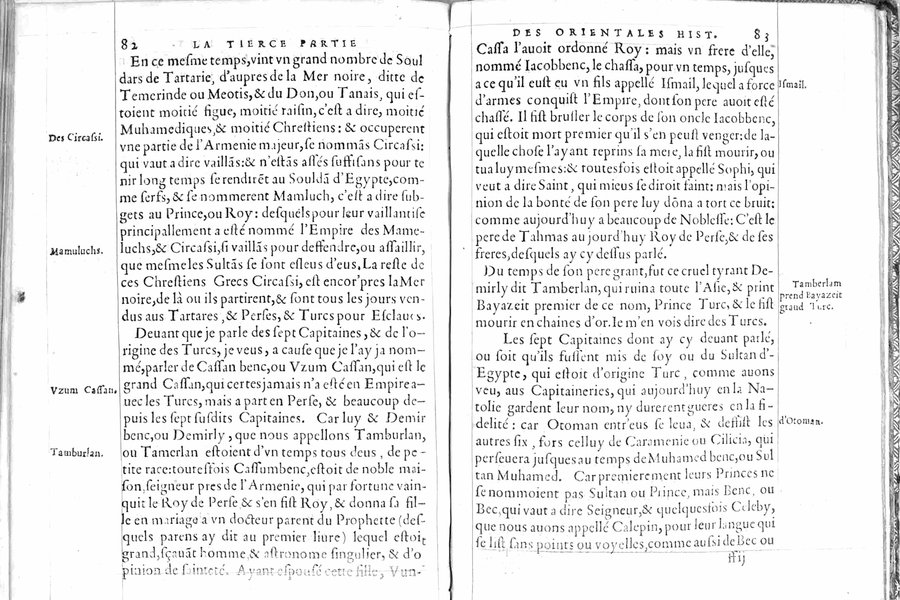 82 LA TIERCE PARTIE
En ce meſme temps,vint vn grand nombre de Soul
dars de Tartarie, d'aupres de la Mer noire, ditte de
Temerinde ou Meotis,& du Don,ou Tanais, qui eſ-
toient moitié figue, moitié raiſin, c'eſt a dire, moitié
Muhamediques,& moitié Chreſtiens: & occuperent
Des Circaſsi.
vne partie de l'Armenie majeur,ſe nommãs Circaſsi:
qui vaut a dire vaillãs:& n'eſtãs aſſés ſuffiſans pour te
nir long temps ſe rendirẽt au Souldã d'Egypte,com-
me ſerfs, & ſe nommerent Mamluch, c'eſt a dire ſub-
gets au Prince,ou Roy: deſquels pour leur vaillantiſe
principallement a eſté nommé l'Empire des Mame-
Mamuluchs.
luchs,& Circaſsi,ſi vaillãs pour deffendre,ou aſſaillir,
que meſme les Sultãs ſe ſont eſleus d'eus. La reſte de
ces Chreſtiens Grecs Circaſsi, eſt encor'pres la Mer
noire,de là ou ils partirent,& ſont tous les jours ven-
dus aus Tartares ,& Perſes, & Turcs pour Eſclaues.
Deuant que je parle des ſept Capitaines, & de l'o-
rigine des Turcs, je veus, a cauſe que je l'ay ja nom-
mé,parler de Caſſan benc, ou Vzum Caſſan,qui eſt le
Vzum Caſſan.
grand Caſſan,qui certes jamais n'a eſté en Empire a-
uec les Turcs, mais a part en Perſe, & beaucoup de-
puis les ſept ſuſdits Capitaines. Car luy & Demir
benc,ou Demirly , que nous appellons Tamburlan,
Tamburlan.
ou Tamerlan eſtoient d'vn temps tous deus , de pe-
tite race:toutesfois Caſſumbenc,eſtoit de noble mai-
ſon,ſeigneur pres de l'Armenie, qui par fortune vain-
quit le Roy de Perſe & s'en fiſt Roy, & donna ſa fil-
le en mariage a vn docteur parent du Prophette (deſ-
quels parens ay dit au premier liure) lequel eſtoit
grand,ſçauãt homme,& aſtronome ſingulier, & d'o
pinion de ſainteté. Ayant eſpouſé cette fille, Vun-
DES ORIENTALES HIST. 83
Caſſa l'auoit ordonné Roy : mais vn frere d'elle,
nommé Iacobbenc, le chaſſa, pour vn temps, juſques
a ce qu'il euſt eu vn fils appellé Iſmail, lequel a force
Iſmail.
d'armes conquiſt l'Empire, dont ſon pere auoit eſté
chaſſé. Il fiſt bruſler le corps de ſon oncle Iacobbenc,
qui eſtoit mort premier qu'il s'en peuſt venger: de la-
quelle choſe l'ayant reprins ſa mere, la fiſt mourir, ou
tua luy meſmes:& toutesfois eſtoit appellé Sophi, qui
veut a dire Saint , qui mieus ſe diroit faint: mais l'opi-
nion de la bonté de ſon pere luy dõna a tort ce bruit:
comme aujourd'huy a beaucoup de Nobleſſe: C'eſt le
pere de Tahmas aujourd'huy Roy de Perſe,& de ſes
freres,deſquels ay cy deſſus parlé.
Du temps de ſon pere grant,fut ce cruel tyrant De-
mirly dit Tamberlan, qui ruina toute l'Aſie, & print
Tamberlam
prend Bayazeit
grand Turc.
Bayazeit premier de ce nom, Prince Turc, & le fiſt
mourir en chaines d'or. Ie m'en vois dire des Turcs.
Les ſept Capitaines dont ay cy deuant parlé,
ou ſoit qu'ils fuſſent mis de ſoy ou du Sultan d'-
Egypte , qui eſtoit d'origine Turc , comme auons
veu, aus Capitaineries, qui aujourd'huy en la Na-
tolie gardent leur nom, ny durerent gueres en la fi-
delité : car Otoman entr'eus ſe leua, & deffiſt les
d'Otoman.
autres ſix , fors celluy de Caramenie ou Cilicia, qui
perſeuera juſques au temps de Muhamed benc,ou Sul
tan Muhamed. Car premierement leurs Princes ne
ſe nommoient pas Sultan ou Prince, mais Benc, ou
Bec,qui vaut a dire Seigneur,& quelquesfois Celeby,
que nous auons appellé Calepin, pour leur langue qui
ſe liſt ſans points ou voyelles,comme auſsi de Bec ou
ff ij